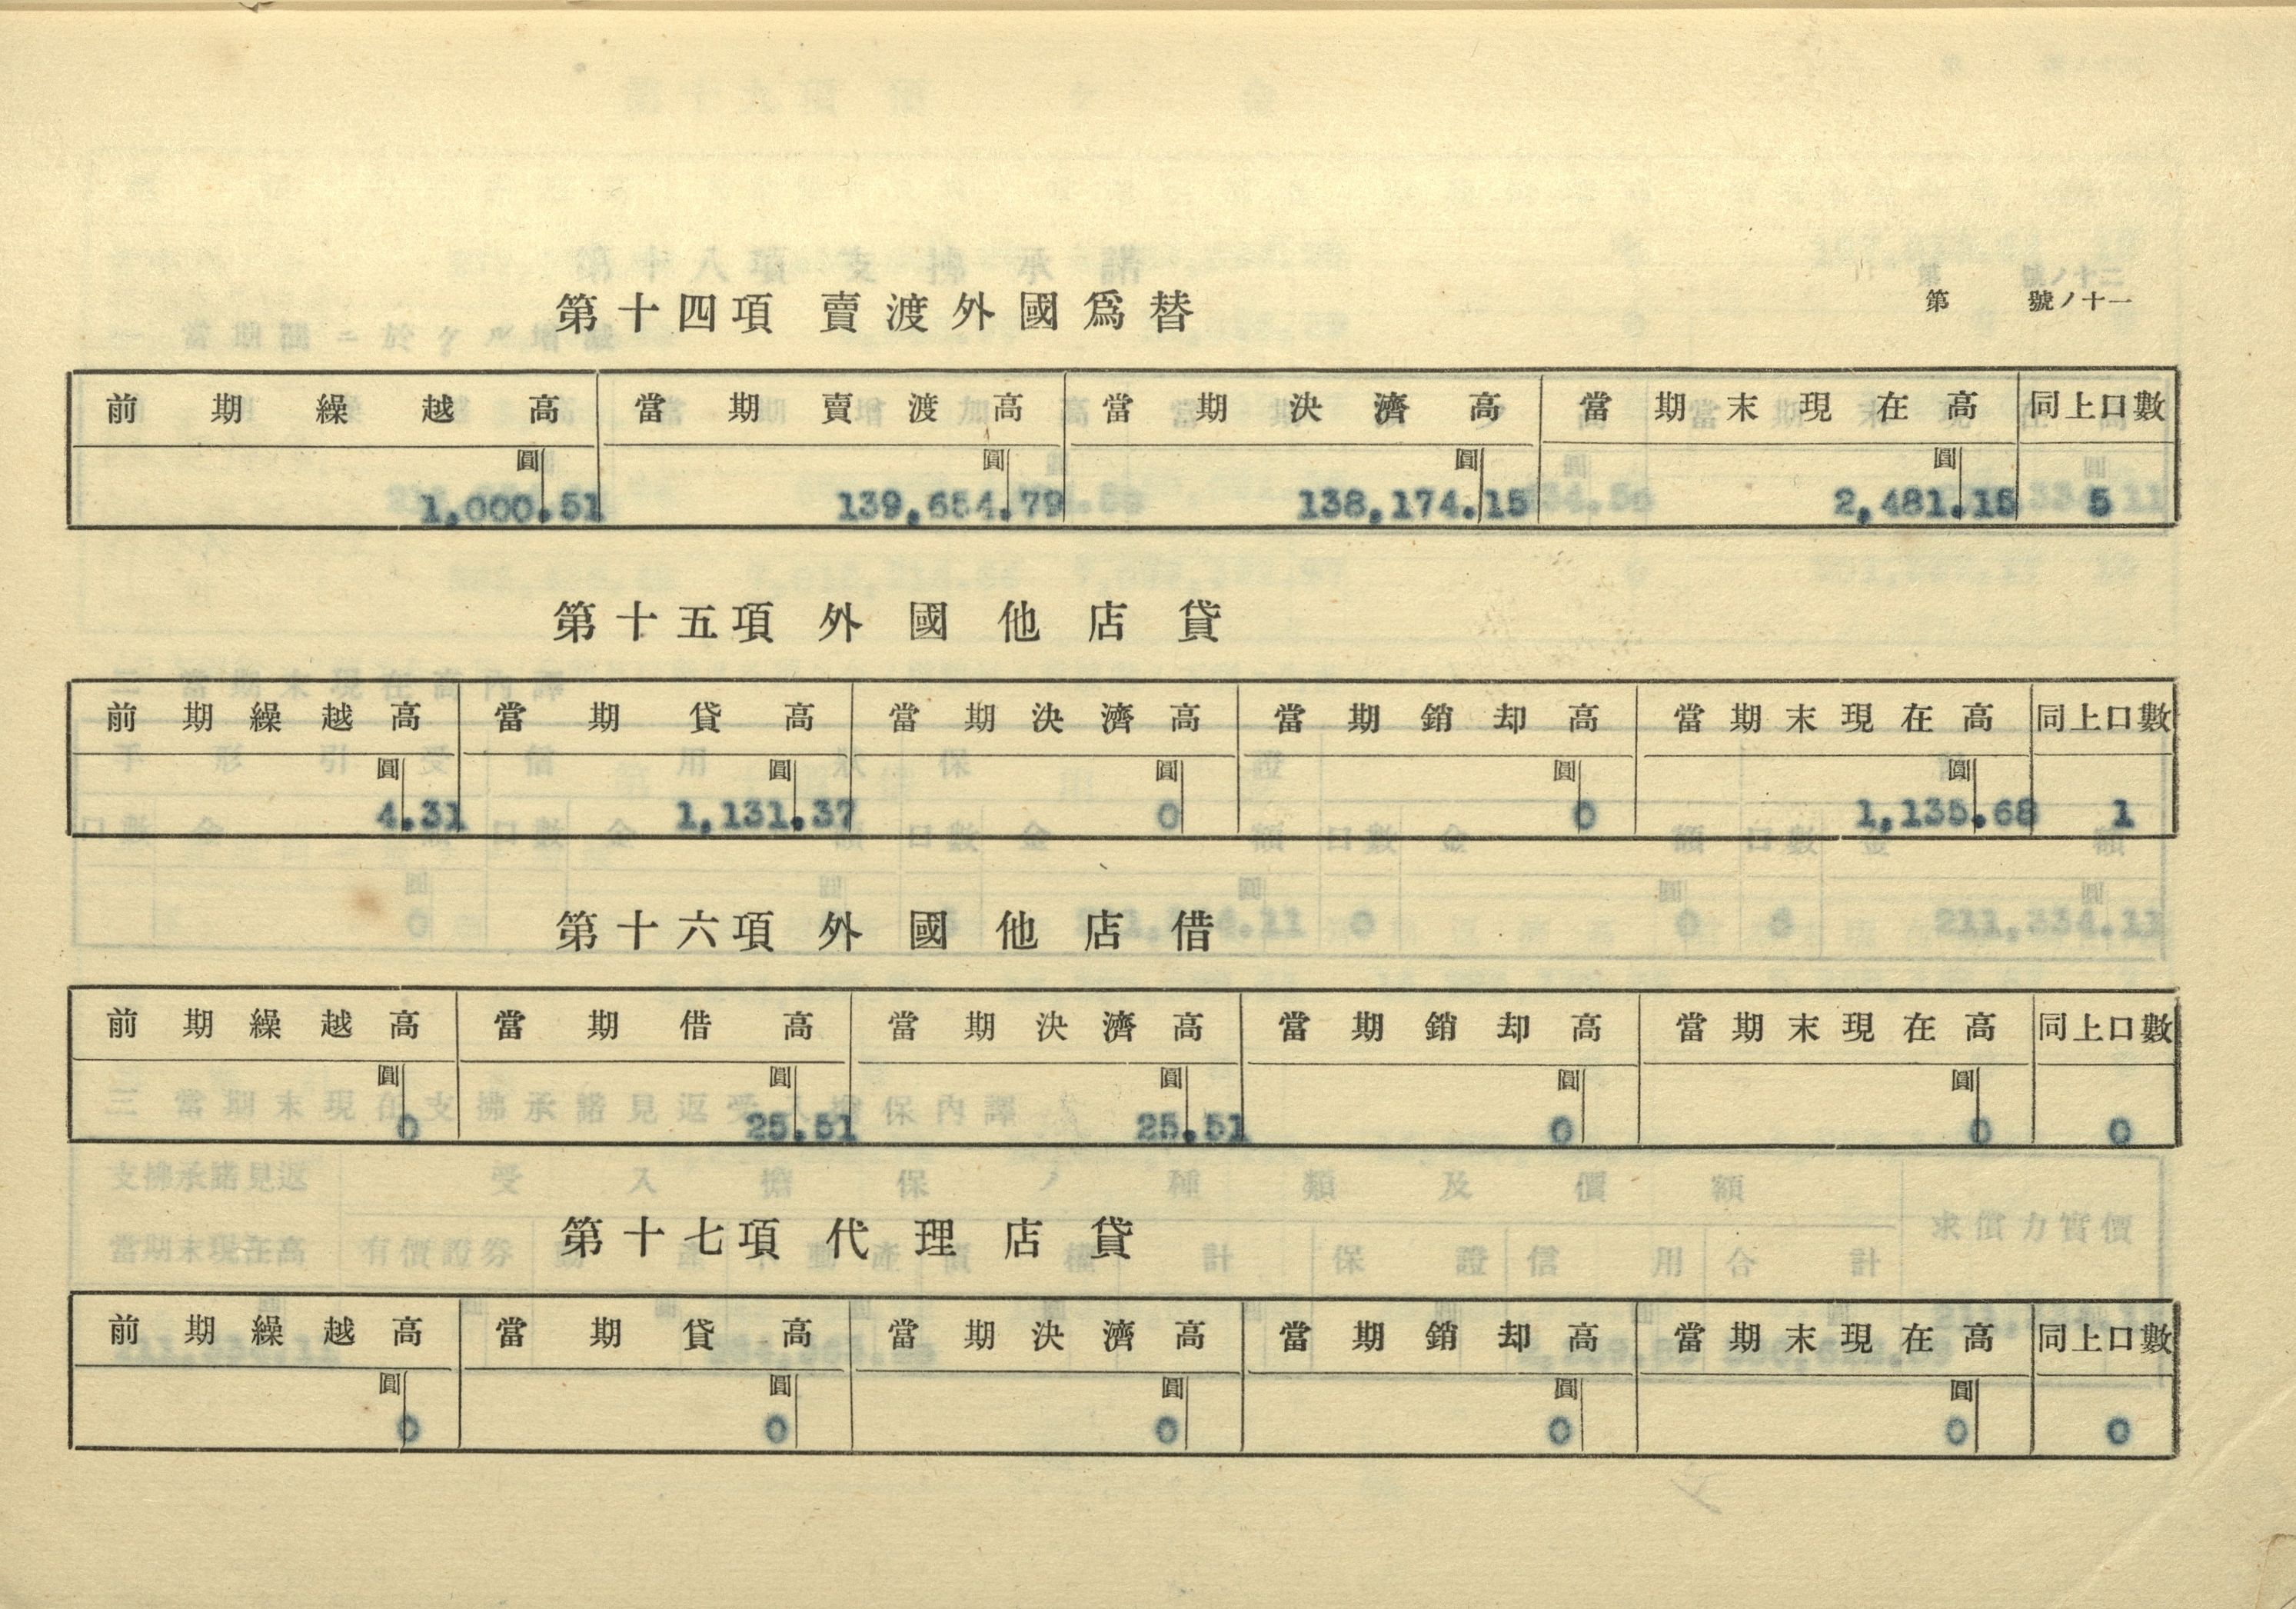 第 號ノ十一
第十四項 賣渡外國爲替
前期繰越高 當期賣渡高 當期決濟高 當期末現在高 同上口數
圓 圓 圓 圓
1,000.51 139,654.79 138,174.15 2,481.15 5
第十五項 外國他店貸
前期繰越高 當期貸高 當期決濟高 當期銷却高 當期末現在高 同上口數
圓 圓 圓 圓 圓
4.31 1,131.37 0 0 1,135.68 1
第十六項 外國他店借
前期繰越高 當期借高 當期決濟高 當期銷却高 當期末現在高 同上口數
圓 圓 圓 圓 圓
0 25.51 25.51 0 0 0
第十七項 代理店貸
前期繰越高 當期貸高 當期決濟高 當期銷却高 當期末現在高 同上口數
圓 圓 圓 圓 圓
0 0 0 0 0 0